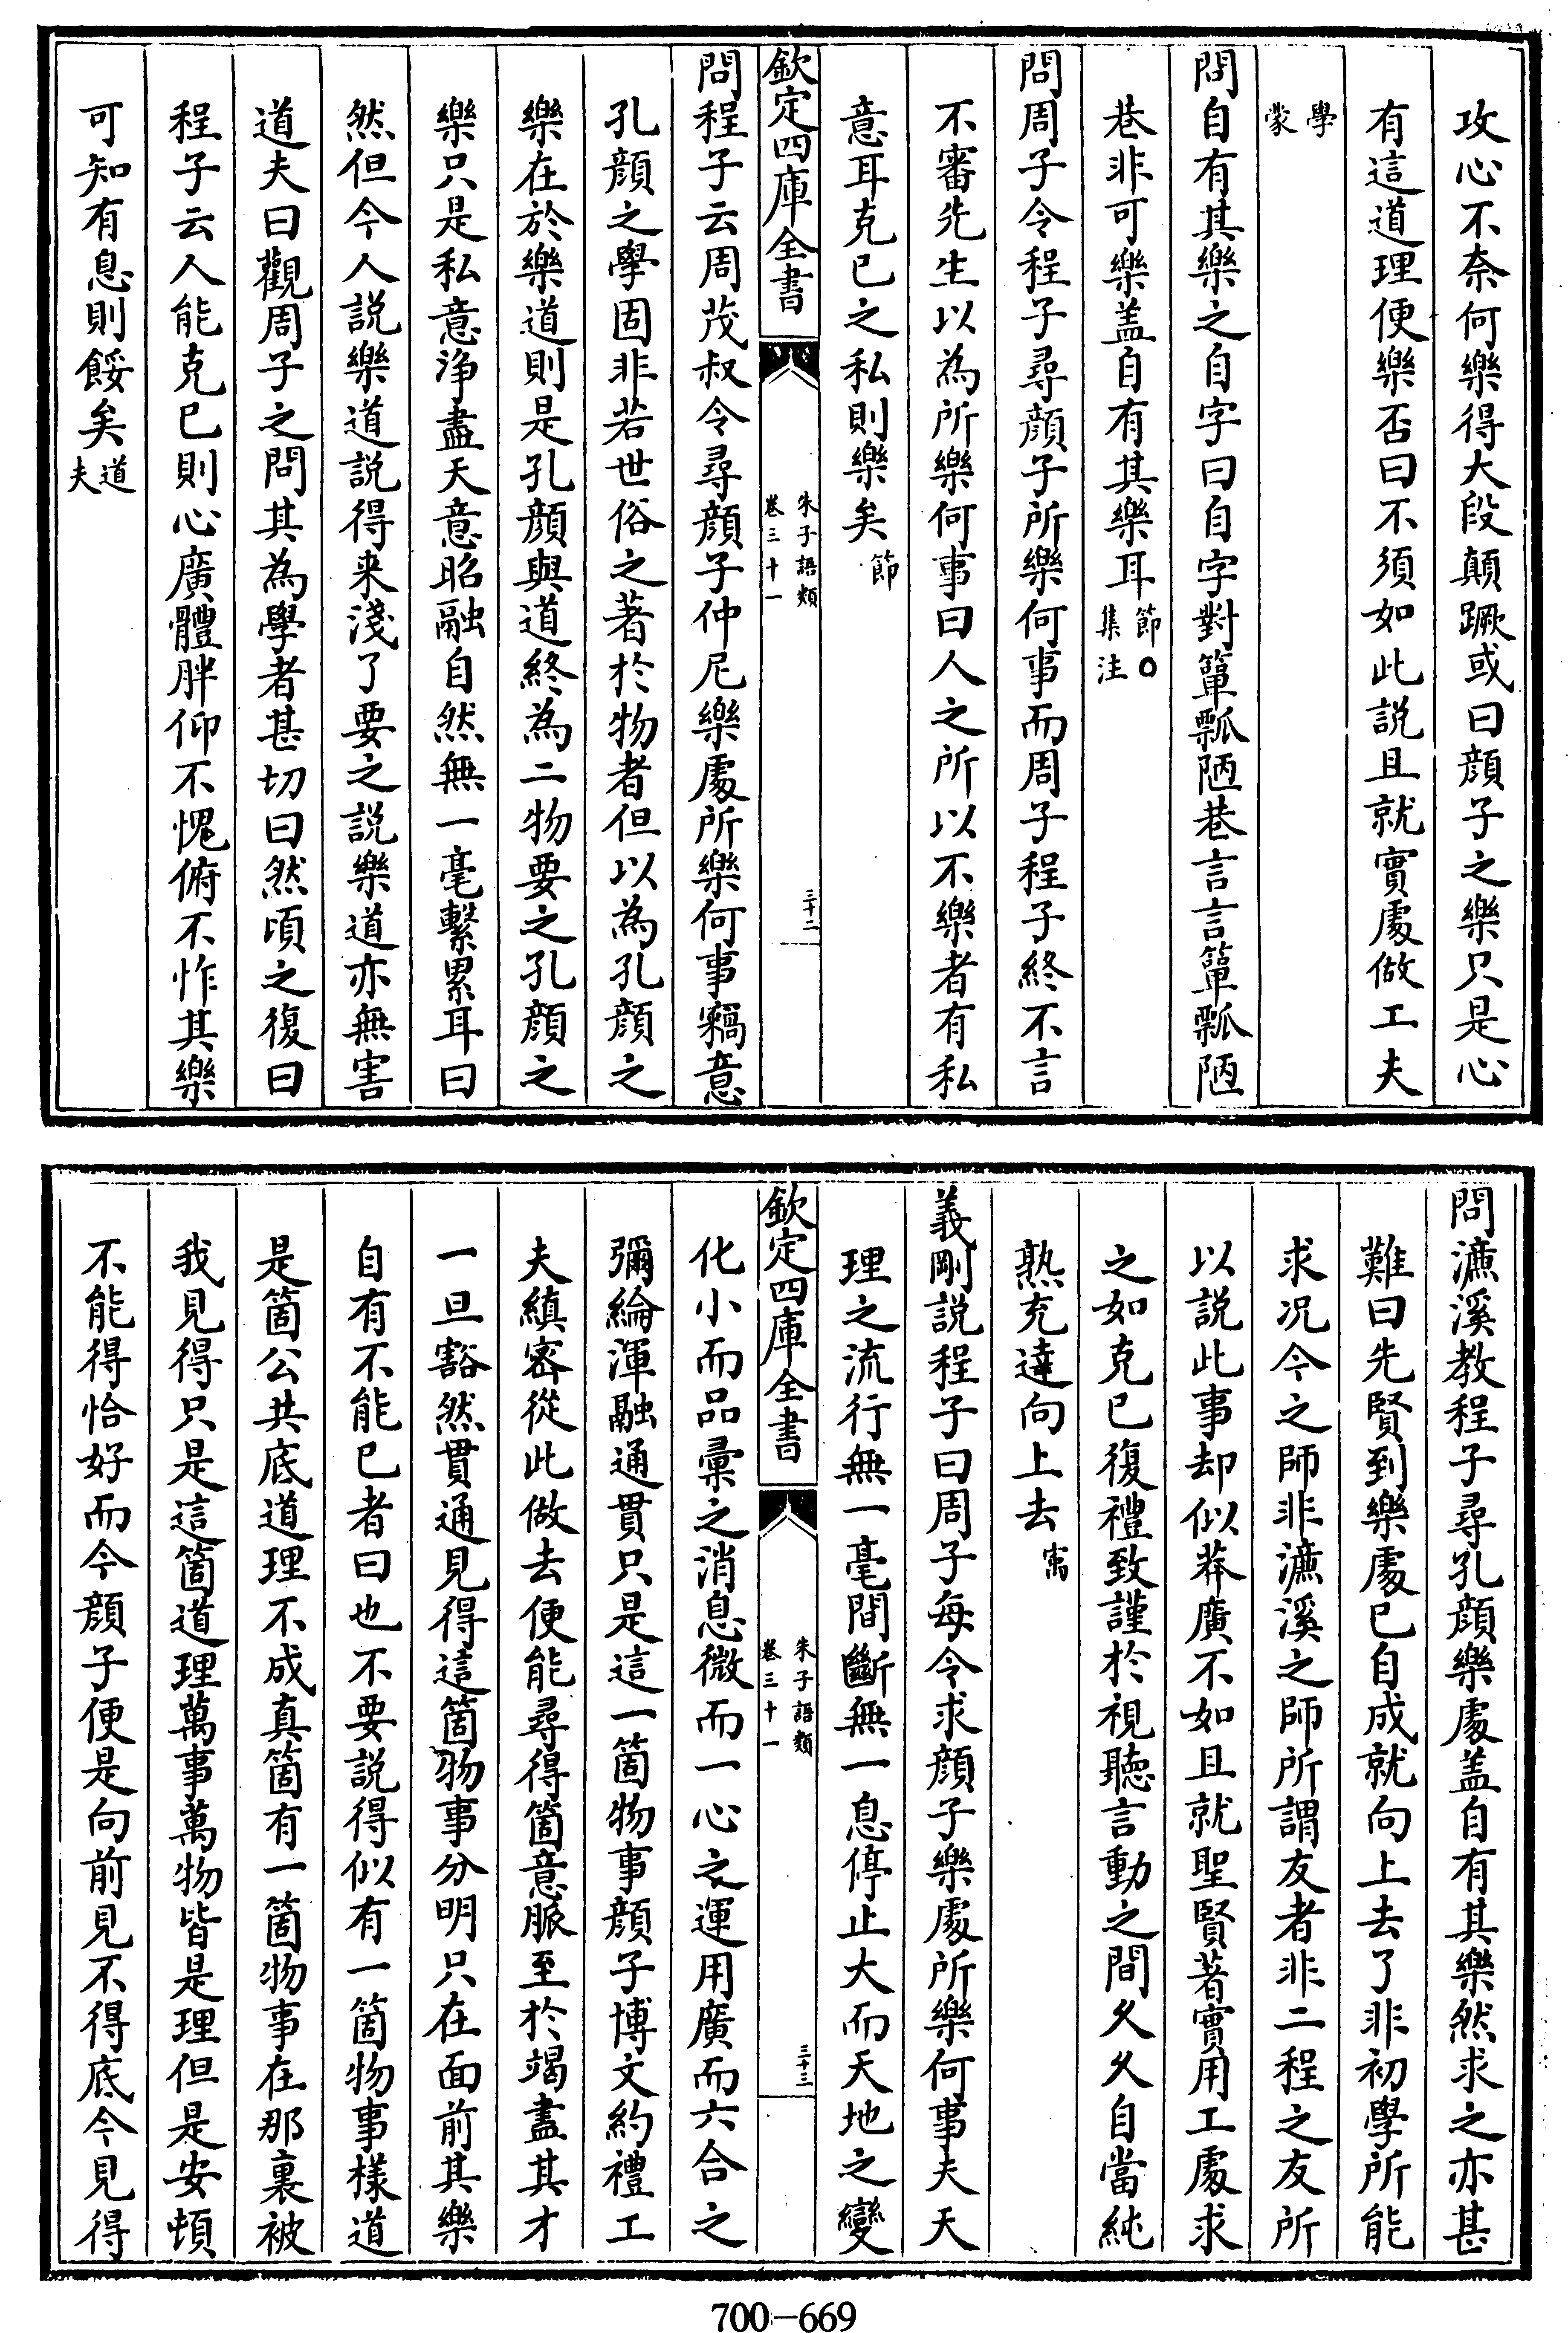 攻心不奈何樂得大段顛蹶或曰顔子之樂只是心
有這道理便樂否曰不須如此説且就實處做工夫
學
蒙
問自有其樂之自字曰自字對簞瓢陋巷言言簞瓢陋
巷非可樂盖自有其樂耳節○
集注
問周子令程子尋顔子所樂何事而周子程子終不言
不審先生以為所樂何事曰人之所以不樂者有私
意耳克已之私則樂矣節
欽定四庫全書
朱子語類
卷三十一
三十二
問程子云周茂叔令尋顔子仲尼樂處所樂何事竊意
孔顔之學固非若世俗之著於物者但以為孔顔之
樂在於樂道則是孔顔與道終為二物要之孔顔之
樂只是私意浄盡天意昭融自然無一毫繫累耳曰
然但今人説樂道説得来淺了要之説樂道亦無害
道夫曰觀周子之問其為學者甚切曰然頃之復曰
程子云人能克已則心廣體胖仰不愧俯不怍其樂
可知有息則餒矣道
夫
問濂溪教程子尋孔顔樂處盖自有其樂然求之亦甚
難曰先賢到樂處已自成就向上去了非初學所能
求况今之師非濂溪之師所謂友者非二程之友所
以説此事却似莽廣不如且就聖賢著實用工處求
之如克已復禮致謹於視聽言動之間久久自當純
熟充達向上去㝢
義剛説程子曰周子每令求顔子樂處所樂何事夫天
理之流行無一毫間斷無一息停止大而天地之變
欽定四庫全書
朱子語類
卷三十一
三十三
化小而品彙之消息微而一心之運用廣而六合之
彌綸渾融通貫只是這一箇物事顔子博文約禮工
夫縝宻從此做去便能尋得箇意脈至於竭盡其才
一旦豁然貫通見得這箇物事分明只在面前其樂
自有不能已者曰也不要説得似有一箇物事樣道
是箇公共底道理不成真箇有一箇物事在那裏被
我見得只是這箇道理萬事萬物皆是理但是安頓
不能得恰好而今顔子便是向前見不得底今見得
700-669